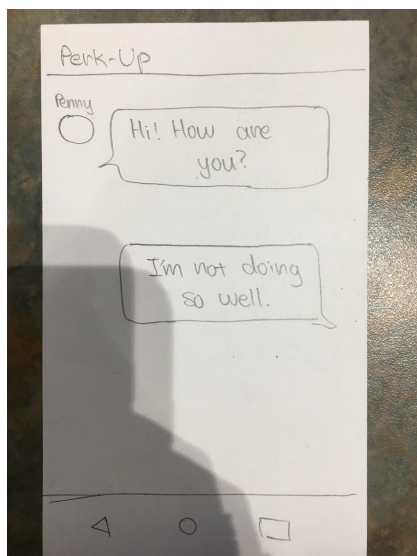 Perk-Up
Penny
Hi! How are
you?
I'm not doing
so well.